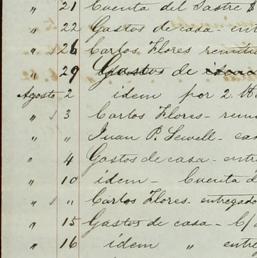 " 21 Cuenta del Sastre
" 22 Gastos de casa - ent
" 26 Carlos Flores remiti
" 29 Gastos de
Agosto 2 idem por 2
" 3 Carlos Flores - rem
" " Juan P. Sewell - ca
" 4 Gastos de casa - entr
" 10 idem - Cuenta d
" " Carlos Flores. entregado
" 15 Gastos de casa - C/
" 16 idem " entreg